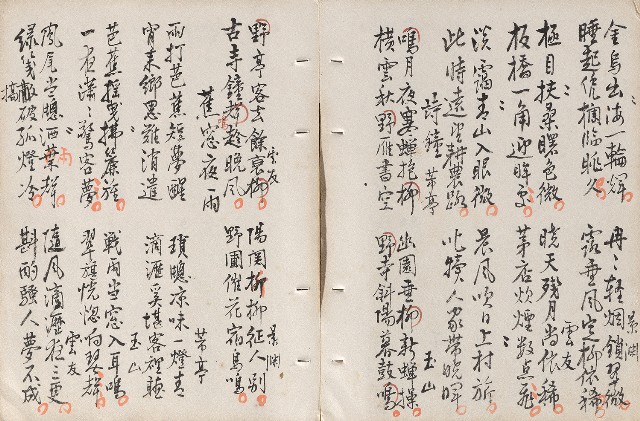 金烏出海一輪輝　冉〻輕烟鎖翠微
睡起憑欄臨眺久　露垂風定柳依稀
景闲
極目扶桑曙色微　曉天殘月尚依稀
板橋一角迎眸處　茅店炊煙數点飛
雲友
淡靄青山入眼微　晨風喚日上村旂
此時遠望耕農路　叱犢人家帶晚暉
玉山
詩鐘　苇亭
鳴月夜寒蟬抱柳　出園垂柳新蟬操
橫雲秋野雁書空　野寺斜陽暮鼓鳴
雲友
野亭客去餘衰柳　陽関柳柳征人別
景闲
古寺鐘聲趁晚風　野圃催花宿鳥鳴
蕉窓夜雨
苇亭
雨打芭蕉短夢醒　瑣聰涼味一燈青
宵來鄉思難消遣　滴瀝奚堪客裡聽
玉山
芭蕉搖曳拂簾旌　戰雨当窓入耳鳴
一夜瀟〻驚客夢　翠旗恍惚向琴聲
雲友
鳳尾当聰洒葉聲　隨風滴瀝在三更
綠箋敲破孤燈冷　斟酌騷人夢不成